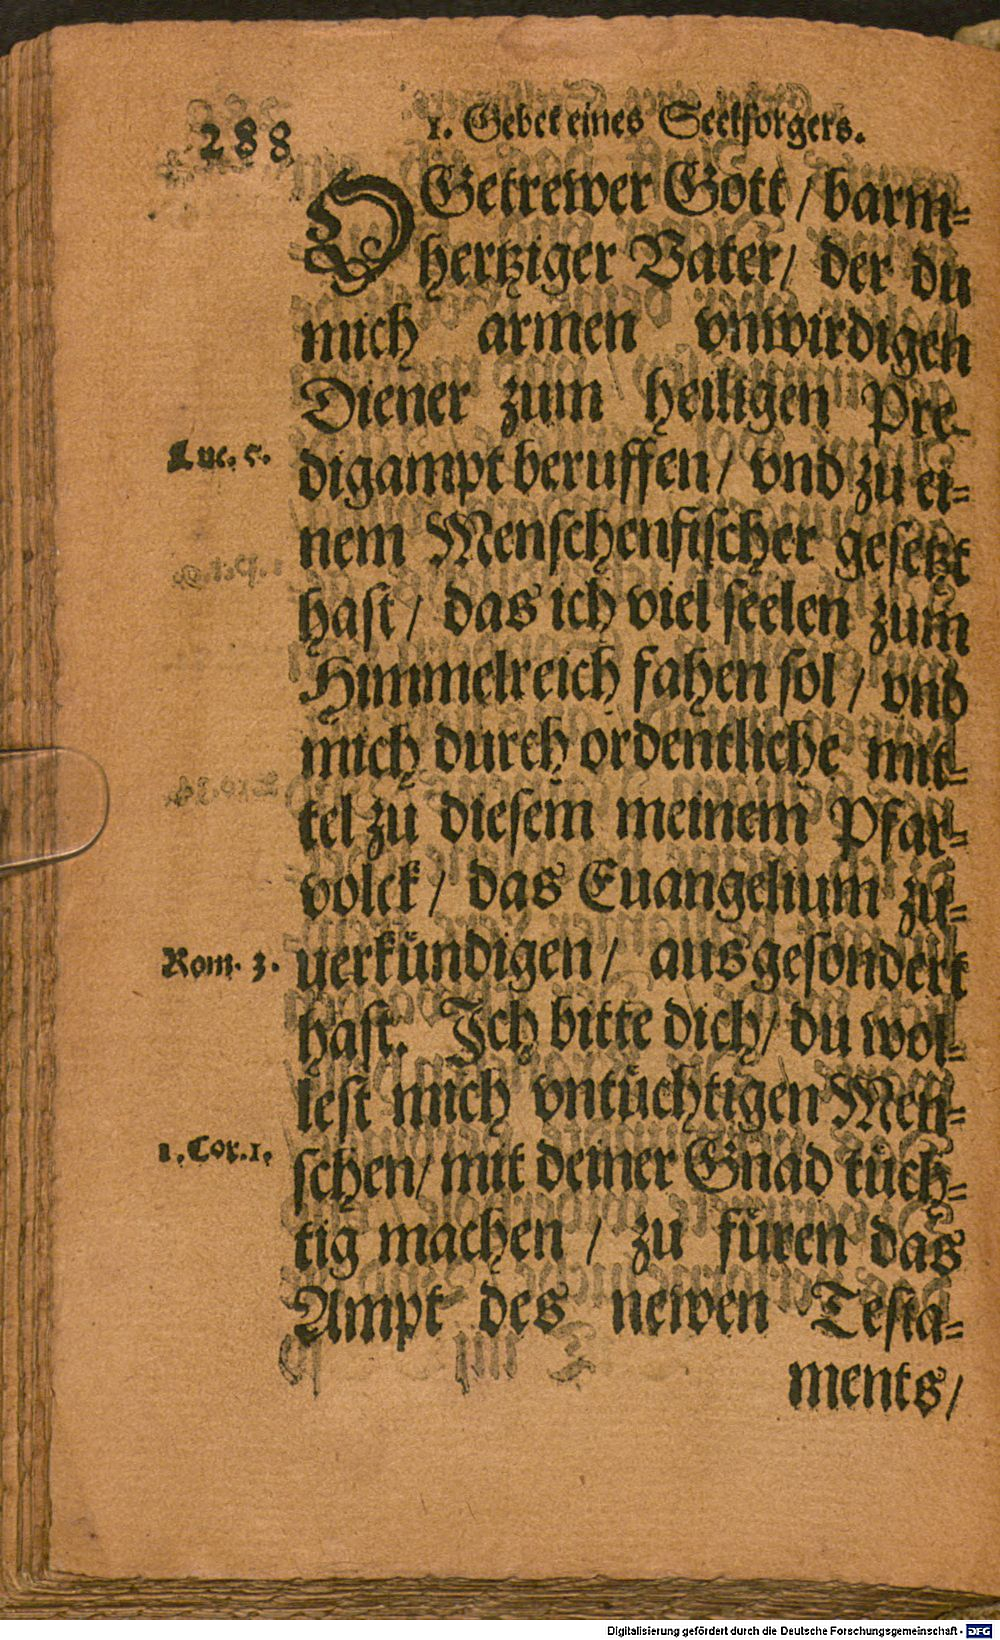 288
1. Gebet eines Seelsorgers.
O Getrewer Gott / barm-
hertziger Vater / der du
mich armen vnwirdigen
Diener zum heiligen Pre-
Luc. 5. digampt beruffen / vnd zu ei-
nem Menschenfischer gesetzt
hast / das ich viel seelen zum
Himmelreich fahen sol / vnd
mich durch ordentliche mit-
tel zu diesem meinem Pfar-
volck / das Euangelium zu-
Rom. 3. uerkündigen / ausgesondert
hast. Ich bitte dich / du wol-
lest mich vntüchtigen Men-
1. Cor. 1. schen / mit deiner Gnad tüch-
tig machen / zu füren das
Ampt des newen Testa-
ments /
Digitalisierung gefördert durch die Deutsche Forschungsgemeinschaft - DFG